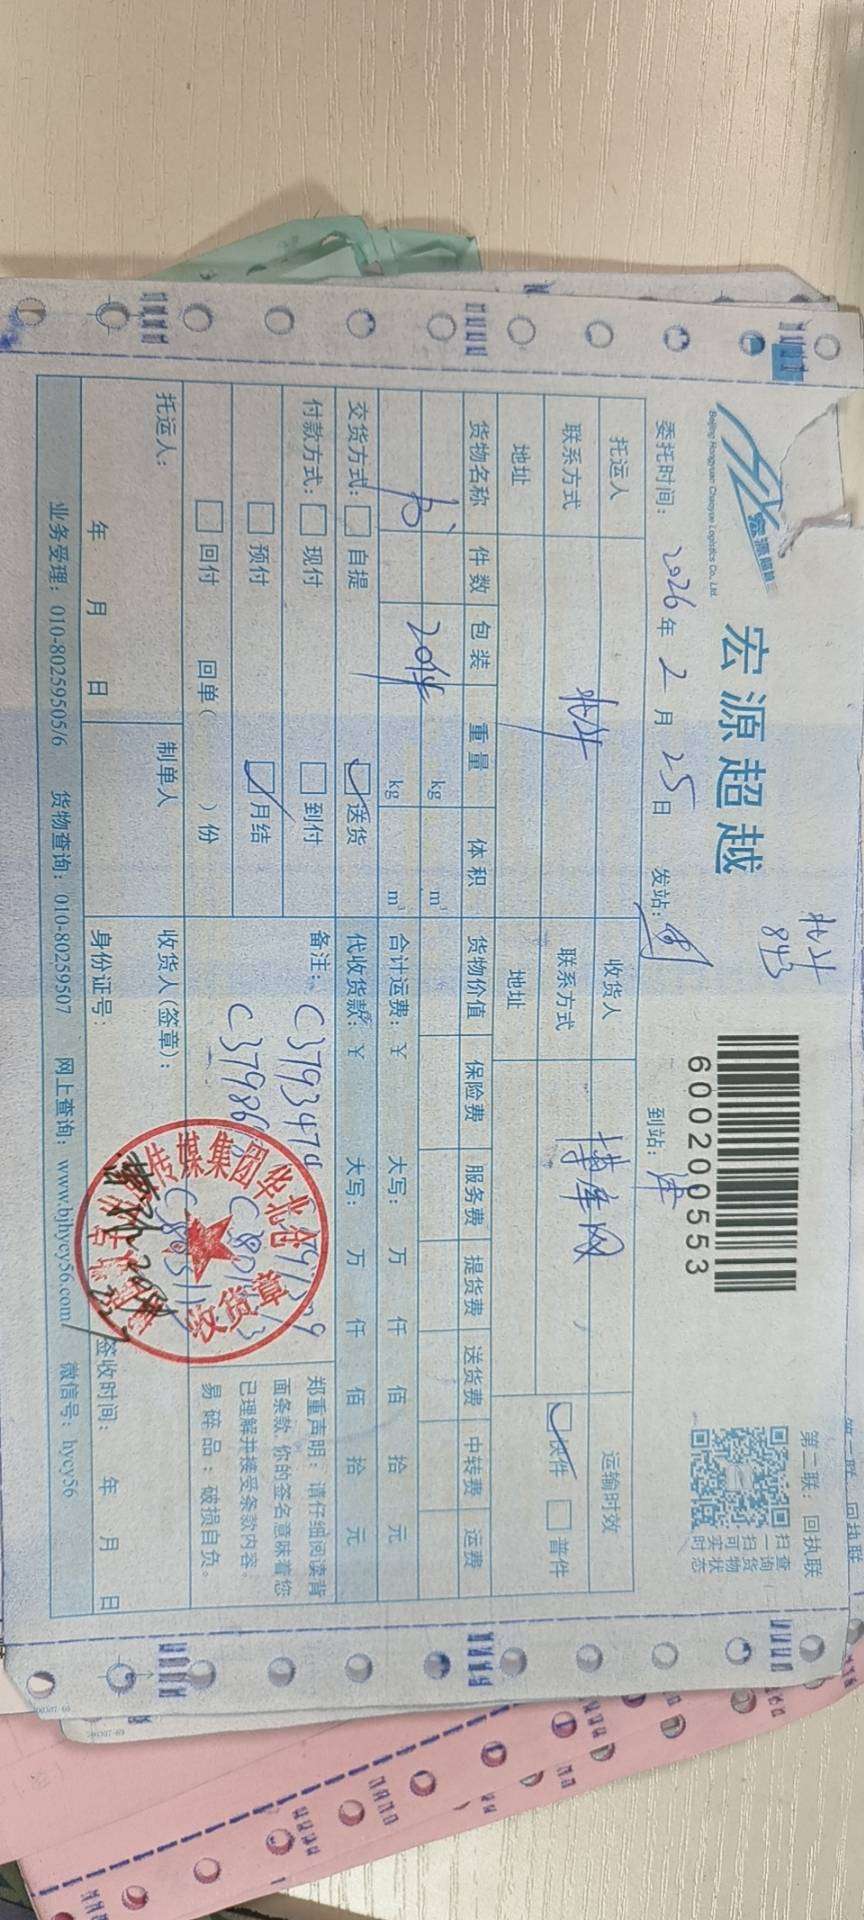 第二联：回执联
北斗
843
Beijing Hongyuan Chaoyue Logistics Co., Ltd.
宏源超越
600200553
扫一扫可实时
查询货物状态
委托时间： 2026 年 2 月 25 日 发站： 到站： 津
托运人 收货人 运输时效
联系方式 北斗 联系方式 博库网 快件 普件
地址 地址
货物名称 件数 包装 重量 体积 货物价值 保险费 服务费 提货费 送货费 中转费 运费
书 kg m³
201件 kg m³ 合计运费：￥ 大写： 万 仟 佰 拾 元
交货方式： 自提 送货 代收货款：￥ 大写： 万 仟 佰 拾 元
付款方式： 现付 到付 备注： C3793474
预付 月结
回付 回单（ ）份
郑重声明：请仔细阅读背
面条款 你的签名意味着您
已理解并接受条款内容。
易碎品：破损自负。
传媒集团华北仓
收货章
托运人： 制单人 收货人（签章）：
年 月 日 身份证号： 签收时间： 年 月 日
业务受理：010-80259505/6 货物查询：010-80259507 网上查询：www.bjhycy56.com 微信号：hycy56